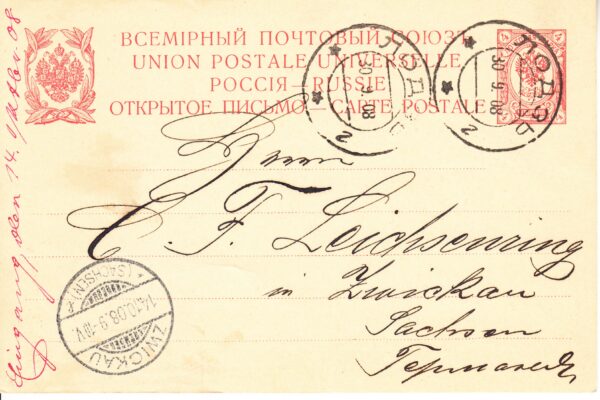 ВСЕМІРНЫЙ ПОЧТОВЫЙ СОЮЗЪ
UNION POSTALE UNIVERSELLE
РОССІЯ—RUSSIE
ОТКРЫТОЕ ПИСЬМО—CARTE POSTALE
ЛОДЗЬ
30 9 08
2
ЛОДЗЬ
30 9 08
2
Herrn
C. F. Leichsenring
in Zwickau
Sachsen
Германія
ZWICKAU
(SACHSEN)
14.10.08.9-10V.
Eingang den 14. 08